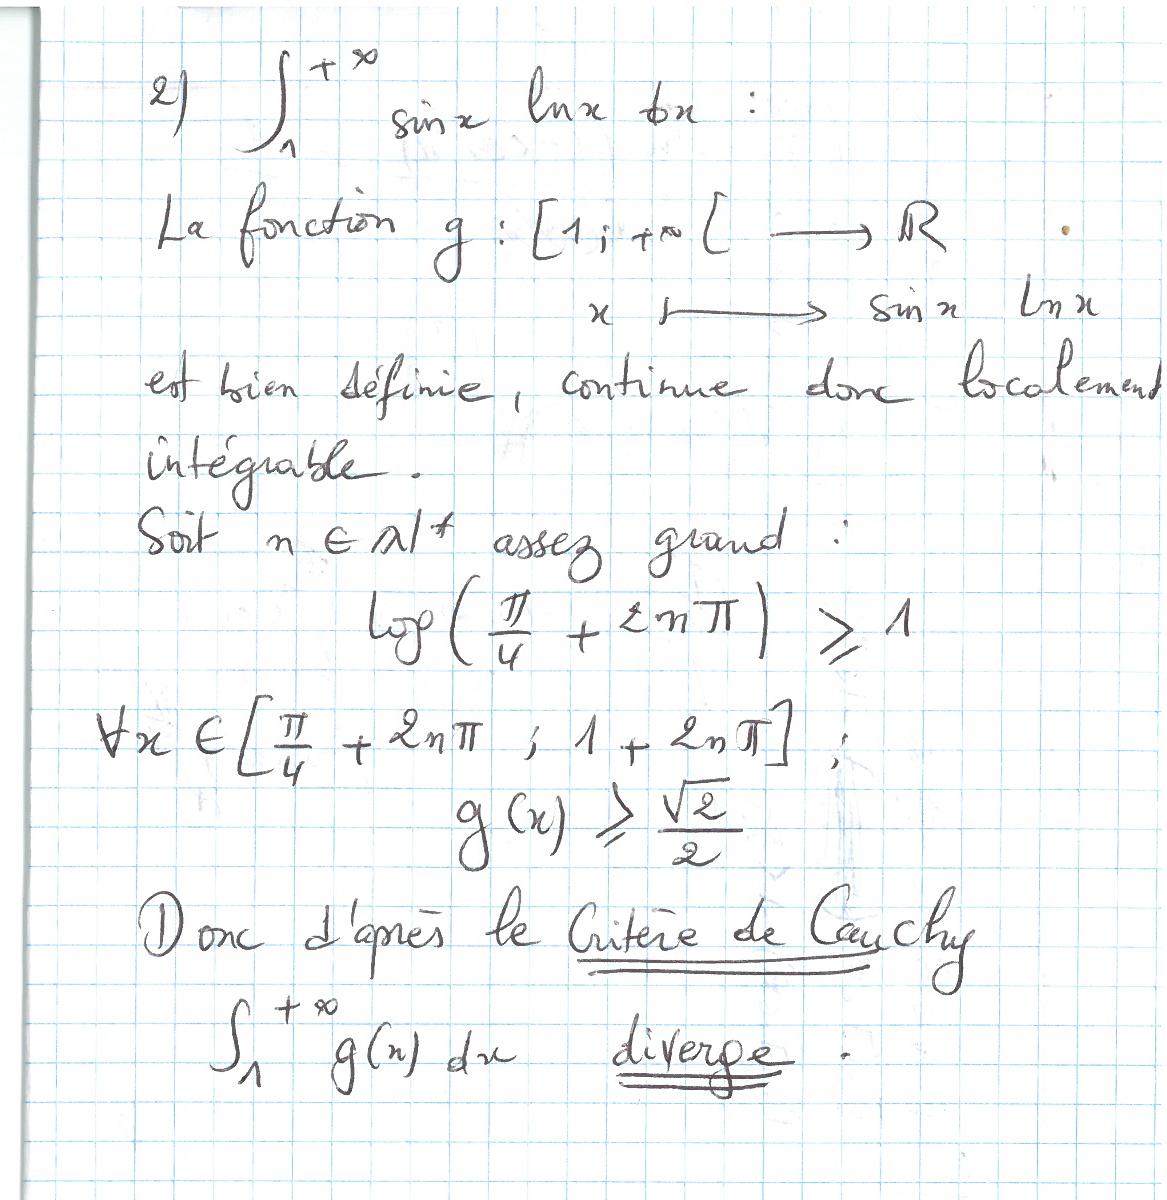 2) ∫₁^{+∞} sin x ln x dx :
La fonction g : [1 ; +∞ [ ⟶ ℝ
x ⟼ sin x ln x
est bien définie, continue donc localement
intégrable.
Soit n ∈ ℕ* assez grand :
log(π/4 + 2nπ) ⩾ 1
∀x ∈ [π/4 + 2nπ ; 1 + 2nπ] ;
g(x) ⩾ √2/2
Donc d'après le Critère de Cauchy
∫₁^{+∞} g(x) dx diverge .